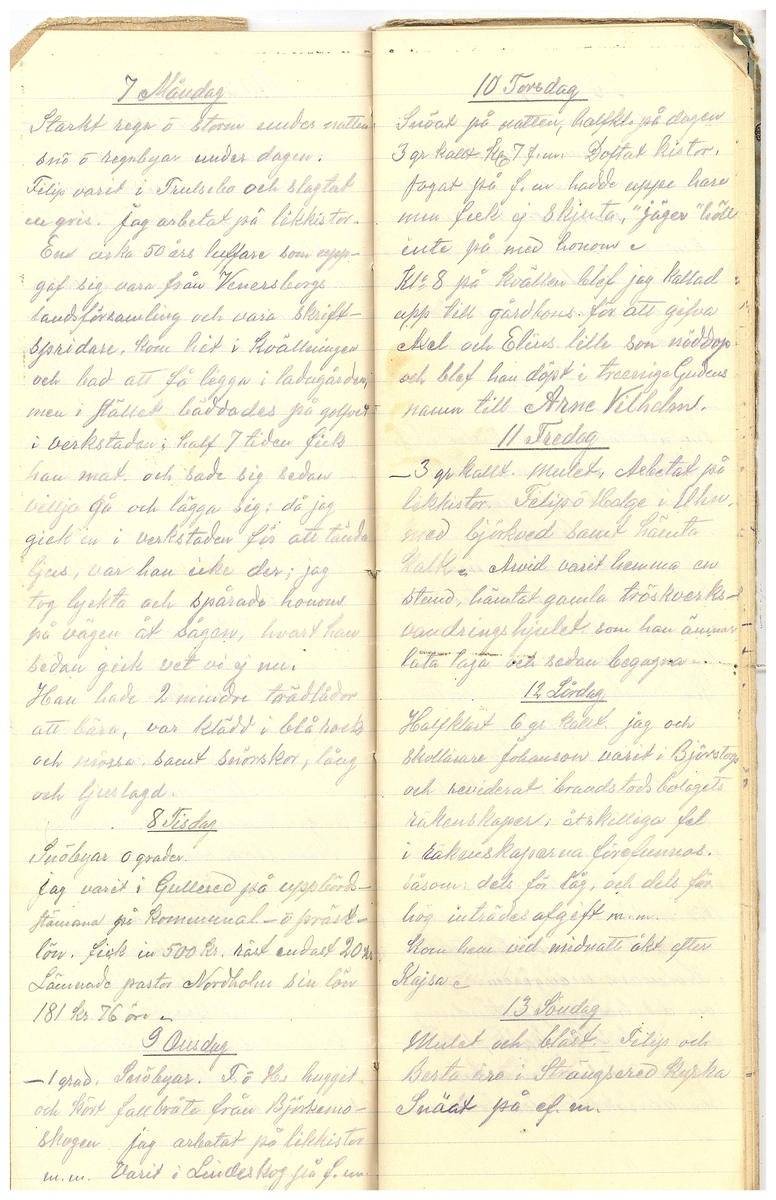 7 Måndag
Starkt regn ö storm under natten
snö ö regnbyar under dagen.
Filip varit i Trulsebo och slagtat
en gris. Jag arbetat på likkistor.
En cirka 50 års luffare som upp-
gaf sig vara från Venersborgs
landsförsamling och vara skrift-
spridare, kom hit i kvällningen
och bad att få ligga i ladugården,
men i stället bäddades på golfvet
i verkstaden; half 7 tiden fick
han mat och sade sig sedan
vilja gå och lägga sig; då jag
gick in i verkstaden för att tända
ljus, var han icke der; jag
tog lyckta och spårade honom
på vägen åt sågen, hvart han
sedan gick vet vi ej nu.
Han hade 2 mindre trädlådor
att bära, var klädd i blå rock
och mössa samt snörskor, lång
och ljuslagd.
8 Tisdag
Snöbyar 0 grader
jag varit i Gullered på uppbörds-
stämma på kommunal- ö präst-
lön. fick in 500 kr. räst endast 20 kr
Lämnade pastor Nordholm sin lön
181 kr 76 öre
9 Onsdag
- 1 grad. Snöbyar. F. ö H. hugget
och kört fallbråte från Björsemo-
skogen jag arbetat på likkistor
m.m. Varit i Lindeskog på f. m
10 Torsdag
Snöat på natten, halfkl. på dagen
3 gr kallt Kl 7 f.m. Doftat kistor.
Jagat på f. m hadde uppe hare
men fick ej skjuta, "Jäger" höll
inte på med honom
Kl: 8 på kvällen blef jag kallad
upp till gårdkons. för att gifva
Axel och Elins lille son nöddop
och blef han döpt i treenige Gudens
namn till Arne Vilhelm.
11 Fredag
- 3 gr kallt. Mulet, Arbetat på
likkistor. Filip ö Helge i Uhn.
med björkved samt hämta
kalk. Arvid varit hemma en
stund, hämtat gamla tröskverks-
vandringshjulet som han ämnar
låta laga och sedan begagna
12 Lördag
Halfklart 6 gr kallt. jag och
skollärare Johanson varit i Björstorp
och reviderat brandstodsbolagets
räkenskaper; åtskilliga fel
i räkenskaperna förefunnos.
såsom: dels för låg, och dels för
hög inträdesafgift m. m.
Kom hem vid midnatt åkt efter
Kajsa
13 Söndag
Mulet och blåst. Filip och
Berta äro i Strängsered kyrka
Snöat på ef. m.